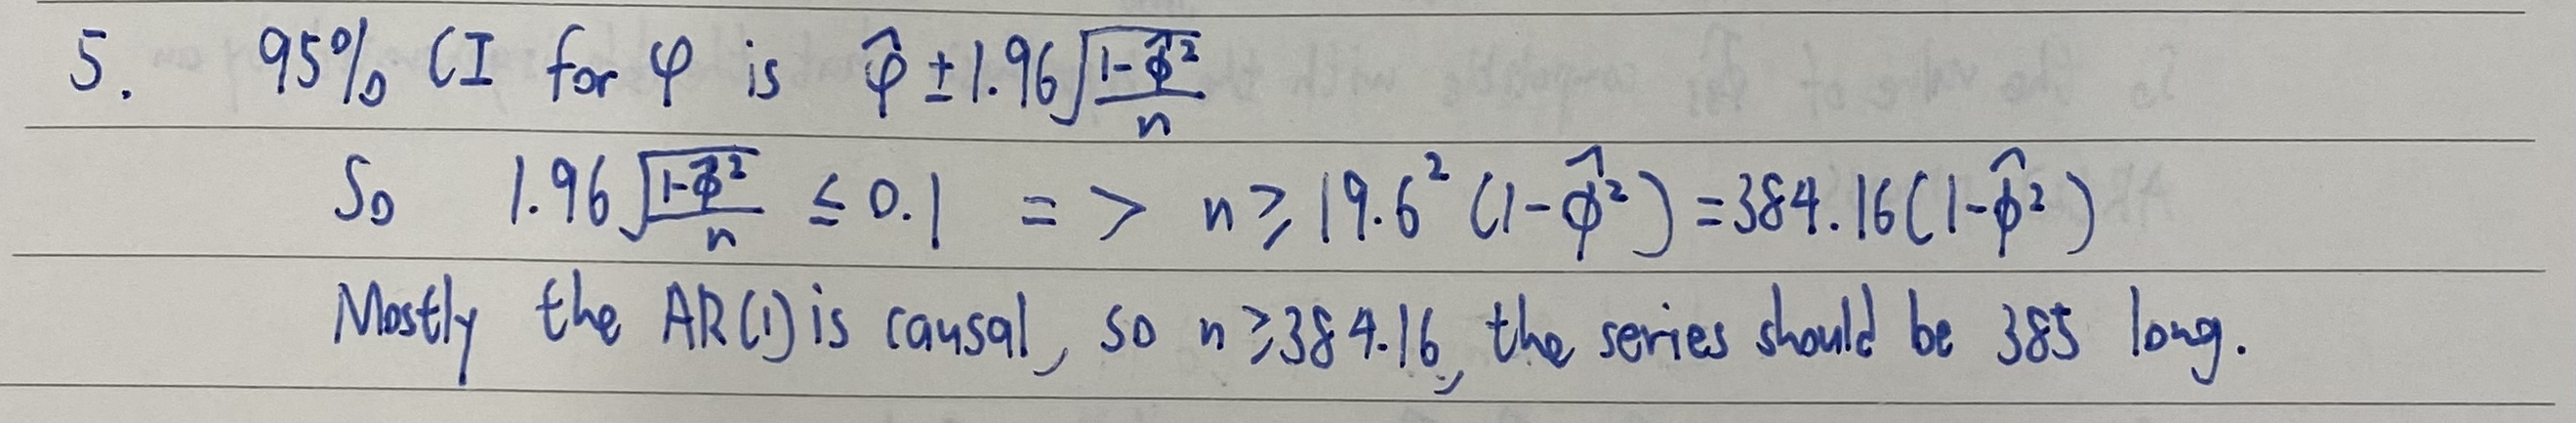 5. 95% CI for φ is φ̂ ± 1.96√((1-φ̂²)/n)
So 1.96√((1-φ̂²)/n) ≤ 0.1 => n ≥ 19.6² (1-φ̂²) = 384.16(1-φ̂²)
Mostly the AR(1) is causal, so n ≥ 384.16, the series should be 385 long.